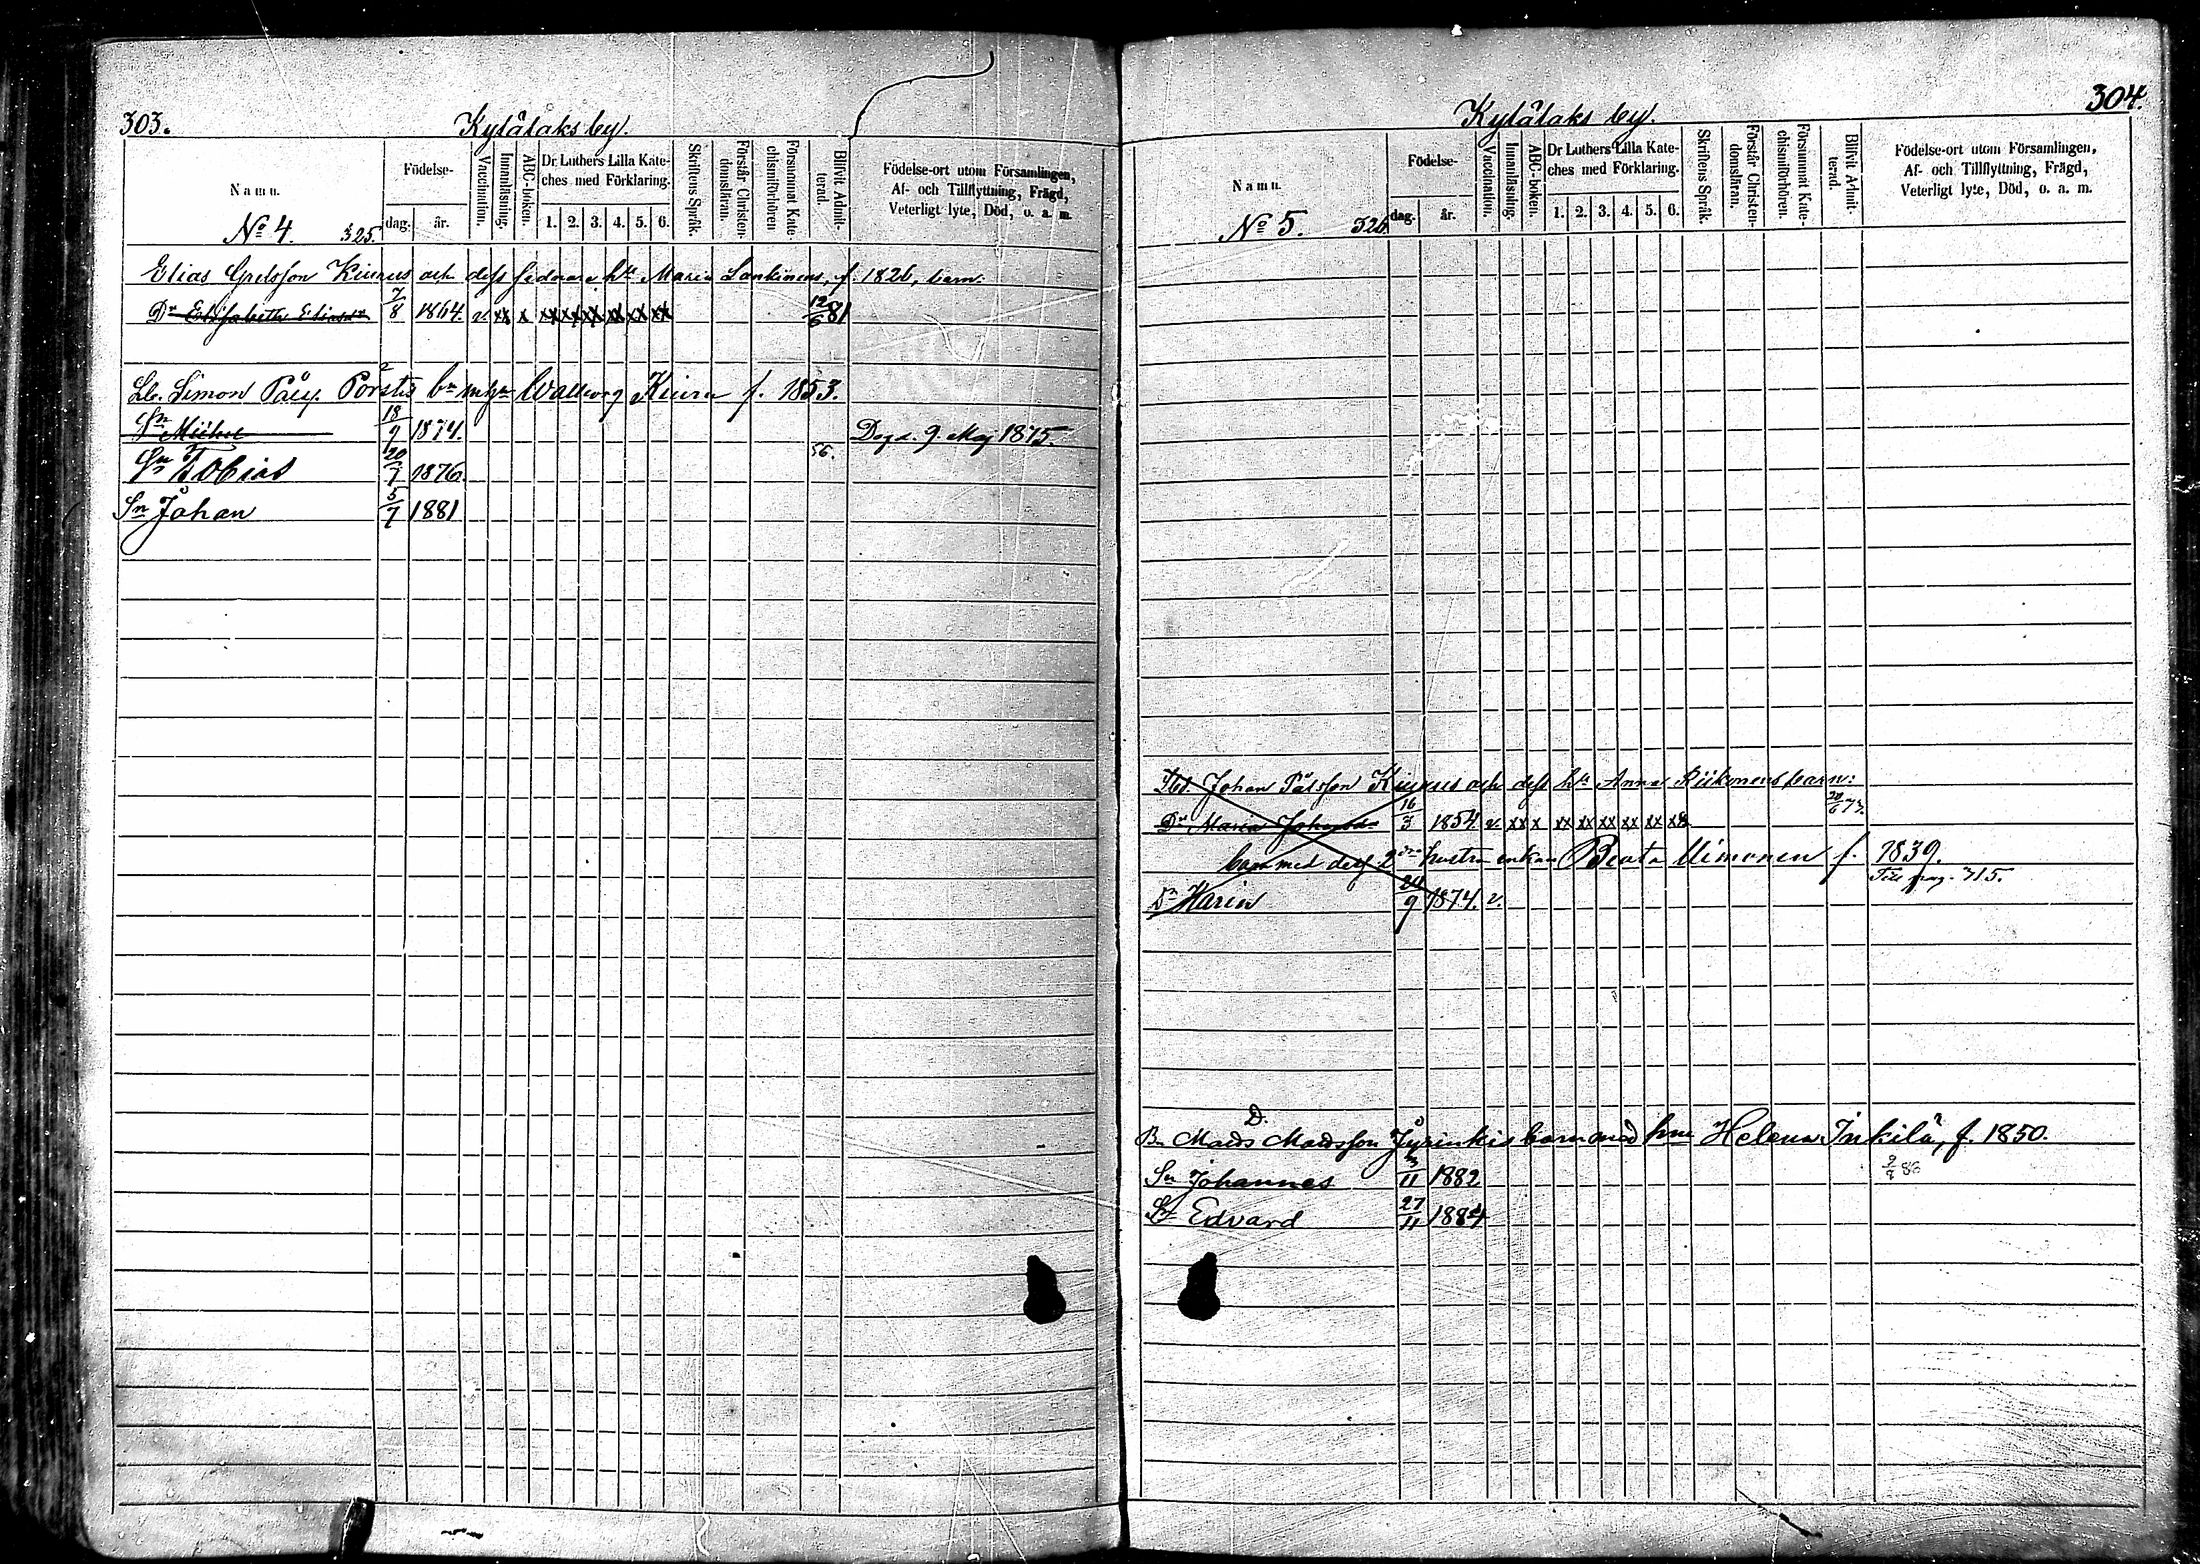 303.
Kylälaks by.
Namn.
Födelse-
dag.
år.
Vaccination.
Innanläsning.
ABC-boken.
Dr Luthers Lilla Kate-
ches med Förklaring.
1. 2. 3. 4. 5. 6.
Skriftens Språk.
Förstår Christen-
domsläran.
Försummat Kate-
chismiförhören
Blifvit Admit-
terad.
Födelse-ort utom Församlingen,
Af- och Tillflyttning, Frägd,
Veterligt lyte, Död, o. a. m.
No 4. 325.
Elias Kiurus och dess hu Maria Lankinens, f. 1826, barn:
Dr Elisabeth Eliasdr 7/8 1864. v. xx x xx xx xx xx xx xx 12/6 81
Simon Pålss. Pörsti bn Walborg Kiuru f. 1853.
Sn Michel 18/9 1874. Død d. 9. Maj 1875.
56.
Sn Tobias 20/7 1876.
Sn Johan 5/7 1881
304.
Kylälaks by.
Namn.
Födelse-
dag.
år.
Vaccination.
Innanläsning.
ABC-boken.
Dr Luthers Lilla Kate-
ches med Förklaring.
1. 2. 3. 4. 5. 6.
Skriftens Språk.
Förstår Christen-
domsläran.
Försummat Kate-
chismiförhören.
Blifvit Admit-
terad.
Födelse-ort utom Församlingen,
Af- och Tillflyttning, Frägd,
Veterligt lyte, Död, o. a. m.
No 5. 326
Johan Pålsson Kiurus och dess hu Anna Riikonens barn:
Dr Maria Johansdr 16/3 1854. v. xx x xx xx xx xx xx xx 20/6 73.
barn med dess 2dra hustru enkan Beata Uimonen f. 1839.
Till pag. 315.
Dr Karin 24/9 1874. v.
D.
Bn Mats Matsson Jyrinkis barn med hnu Helena Inkilä, f. 1850.
Sn Johannes 11 1882
Sn Edvard 27/11 1884